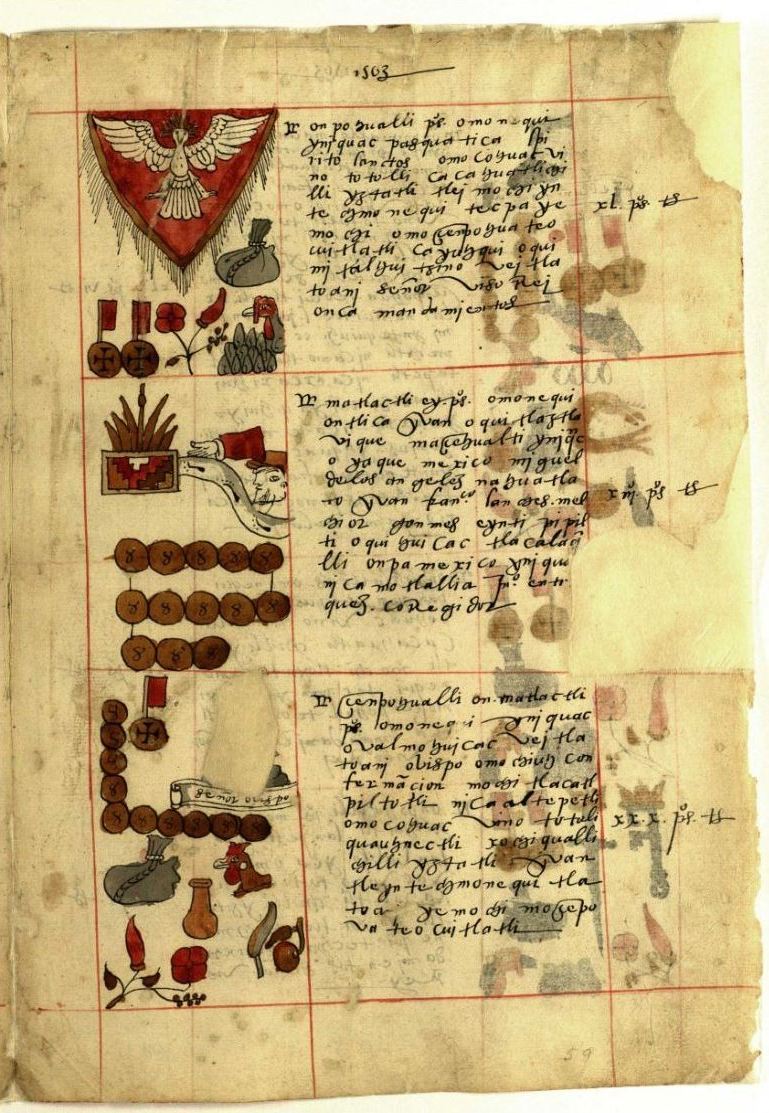 1563
onpohualli ps. omonequi
yniquac pasquatica spi
rito sanctos omocohuac vi
no totolli cacahuatl chi
lli yztatl tlei mochi yn
techmonequi tecpa ye
mochi omocenpohua teo
cuitlatli ca yuhqui oqui
mitalhuitzino vei tla
toani señor viso Rei
onca mandamientos
xl. ps. ts
matlactli ey. ps. omonequi
ontlica yvan oquitlaxtla
vique macehualti yniqc
o yaque mexico miguel
de los angeles nahuatla
to yvan franco sanches. mel
chior gonmes eynti pipil
ti oquihuicac tlacalaq
lli onpa mexico yniqu
nica motlallia po. entr
quez. coRegidor
xiii ps ts
cenpohualli on. matlactli
ps. omonequi yniquac
ovalmohuicac vei tla
toani obispo omochiuh con
fermacion mochi tlacatl
piltotli nica altepetl
omocohuac vino totoli
quauhnectli xochiqualli
chilli yztatli yvan
tleyn techmonequi tla
toa ye mochi mocepo
va teocuitlatli
xxx. ps. ts
señor obispo
59